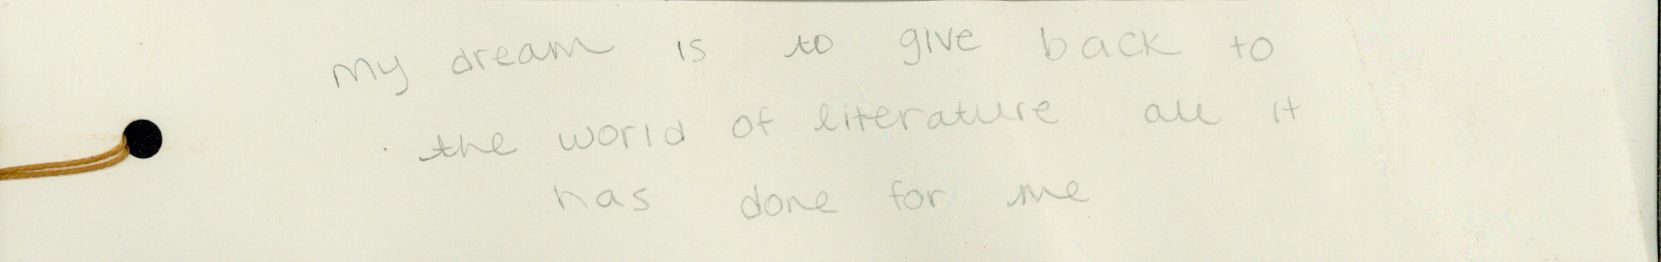 my dream is to give back to
the world of literature all it
has done for me